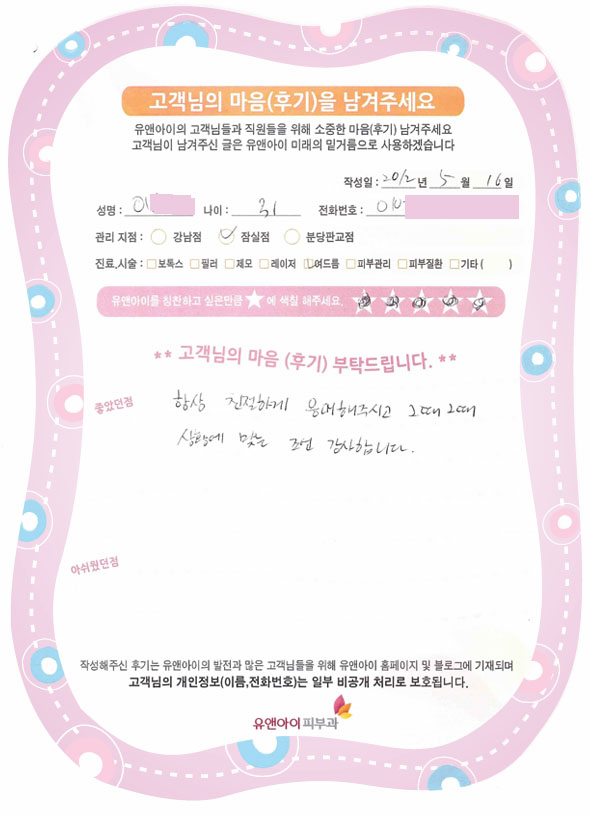 고객님의 마음(후기)을 남겨주세요
유앤아이의 고객님들과 직원들을 위해 소중한 마음(후기) 남겨주세요
고객님이 남겨주신 글은 유앤아이 미래의 밑거름으로 사용하겠습니다
작성일 : 2012 년 5 월 16 일
성명 : 이 나이 : 31 전화번호 : 010
관리 지점 : 강남점 잠실점 분당판교점
진료,시술 : 보톡스 필러 제모 레이저 여드름 피부관리 피부질환 기타 ( )
유앤아이를 칭찬하고 싶은만큼 ★ 에 색칠 해주세요.
** 고객님의 마음 (후기) 부탁드립니다. **
좋았던점
항상 친절하게 응대해주시고 그때 그때
상황에 맞는 조언 감사합니다.
아쉬웠던점
작성해주신 후기는 유앤아이의 발전과 많은 고객님들을 위해 유앤아이 홈페이지 및 블로그에 기재되며
고객님의 개인정보(이름,전화번호)는 일부 비공개 처리로 보호됩니다.
유앤아이 피부과